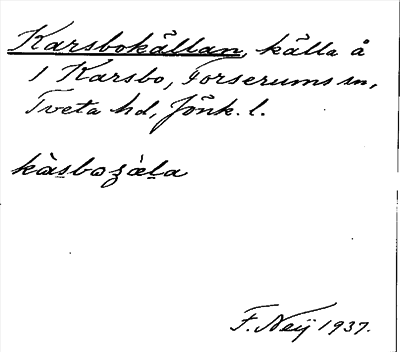 Karsbokällan, källa å
1 Karsbo, Forserums sn,
Tveta hd, Jönk. l.
kàsboʒàla
F. Neij 1937.